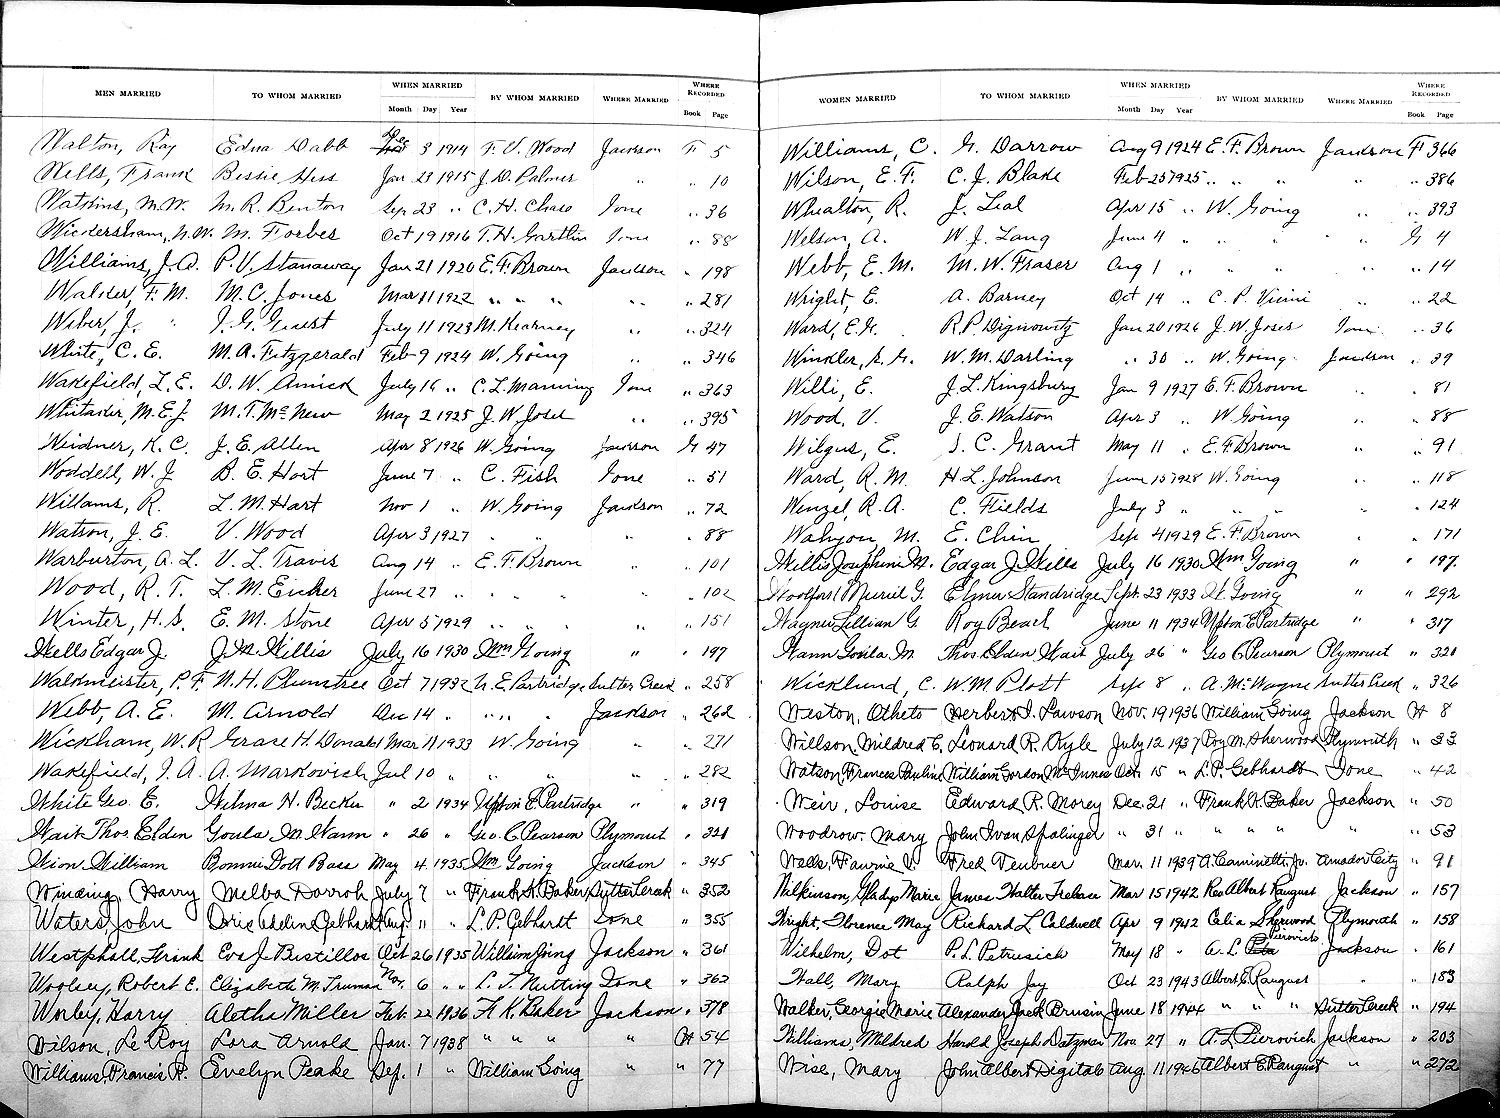 MEN MARRIED TO WHOM MARRIED WHEN MARRIED Month Day Year BY WHOM MARRIED WHERE MARRIED WHERE RECORDED Book Page
Walton, Ray Edna Dabb Dec 3 1914 F. V. Wood Jackson F 5
Wells, Frank Bessie Hess Jan 23 1915 J. D. Palmer " " 10
Watkins, M. W. M. R. Benton Sep 23 " C. H. Chase Ione " 36
Wiedersham, N. W. M. Forbes Oct 19 1916 T. H. Gartlin Ione " 88
Williams, J. A. P. V. Stanaway Jan 21 1920 E. F. Brown Jackson " 198
Walker, F. M. M. C. Jones Mar 11 1922 " " " " " 281
Weber, J. I. G. Guest July 11 1923 M. Kearney " " 324
White, C. E. M. A. Fitzgerald Feb 9 1924 W. Going " " 346
Wakefield, L. E. D. W. Amick July 16 " C. L. Manning Ione " 363
Whitaker, M. E. J. M. T. McNew May 2 1925 J. W. Josel " " 395
Weidner, K. C. J. E. Allen Apr 8 1926 W. Going Jackson G 47
Woddell, W. J B. E. Hart June 7 " C. Fish Ione " 51
Willams, R. L. M. Hart Nov 1 " W. Going Jackson " 72
Watson, J. E. V. Wood Apr 3 1927 " " " " 88
Warburton, A. L. V. L. Travis Aug 14 " E. F. Brown " " 101
Wood, R. T. L. M. Eicher June 27 " " " " " " 102
Winter, H. S. E. M. Stone Apr 5 1929 " " " " " 151
Wells Edgar J. J. M. Willis July 16 1930 Wm Going " " 197
Waldmeister, P. F. N. H. Plumtree Oct 7 1932 U. E. Partridge Sutter Creek " 258
Webb, A. E. M. Arnold Dec 14 " " " " Jackson " 262
Wickham, W. R Grace H. Donald Mar 11 1933 W. Going " " 271
Wakefield, I. A. A. Markovich Jul 10 " " " " " 282
White Geo. E. Wilma H. Becker " 2 1934 Upton E. Partridge " " 319
Wait Thos. Elden Goula M. Wann " 26 " Geo. C. Pearson Plymouth " 321
Wion William Bonnie Dott Bass May 4 1935 Wm. Going Jackson " 345
Winding Harry Melba Darroh July 7 " Frank K. Baker Sutter Creek " 352
Waters, John Doris Adeline Gebhardt Aug. 11 " L. P. Gebhardt Ione " 355
Westphall, Frank Eva J. Bustillos Oct 26 1935 William Going Jackson " 361
Woolsey, Robert E. Elizabeth M. Truman Nov. 6 " " L. T. Nutting Ione " 362
Worley, Harry Aletha Miller Feb. 22 1936 F. K. Baker Jackson " 378
Wilson, Le Roy Lora Arnold Jan. 7 1938 " " " " H 54
Williams, Francis R. Evelyn Peake Sep. 1 " William Going " " 77
WOMEN MARRIED TO WHOM MARRIED WHEN MARRIED Month Day Year BY WHOM MARRIED WHERE MARRIED WHERE RECORDED Book Page
Williams, C. G. Darrow Aug 9 1924 E. F. Brown Jackson F 366
Wilson, E. F. C. J. Blake Feb 25 1925 " " " " " 386
Whealton, R. J. Leal Apr 15 " W. Going " " 393
Welson, A. W. J. Lang June 4 " " " " G 4
Webb, E. M. M. W. Fraser Aug 1 " " " " " " 14
Wright, E. A. Barney Oct 14 " C. P. Vicini " " 22
Ward, E. G. R. P. Dignowity Jan 20 1926 J. W. Josel Ione " 36
Winkler, S. G. W. M. Darling " 30 " W. Going Jackson " 39
Willi, E. J. L. Kingsbury Jan 9 1927 E. F. Brown " " 81
Wood, V. J. E. Watson Apr 3 " W. Going " " 88
Wilgus, E. S. C. Grant May 11 " E. F. Brown " " 91
Ward, R. M. H. L. Johnson June 15 1928 W. Going " " 118
Wenzel, R. A. C. Fields July 3 " " " " " 124
Wahyou, M. E. Chin Sept 4 1929 E. F. Brown " " 171
Willis Josephine M. Edgar J. Wells July 16 1930 Wm Going " " 197
Woolford Muriel G. Elmer Standridge Sept. 23 1933 W. Going " " 292
Wagner Lillian G. Roy Beach June 11 1934 Upton E. Partridge " " 317
Wann Goula M. Thos. Elden Wait July 26 " Geo C. Pearson Plymouth " 321
Wicklund, C. W. M Plott Sept 8 " A. McWayne Sutter Creek " 326
Weston, Otheto Herbert I. Lawson Nov. 19 1936 William Going Jackson H 8
Willson, Mildred C. Leonard R. Kyle July 12 1937 Roy M. Sherwood Plymouth " 33
Watson, Frances Pauline William Gordon McInnes Oct. 15 " L. P. Gebhardt Ione " 42
Weir, Louise Edward R. Morey Dec. 21 " Frank K. Baker Jackson " 50
Woodrow, Mary John Ivan Spalinger " 31 " " " " " " 53
Wells, Fawnie V. Fred Teubner Mar. 11 1939 A. Caminetti, Jr. Amador City " 91
Wilkinson, Gladys Marie James Walter Mar 15 1942 Rev Albert Raugust Jackson " 157
Wright, Florence May Richard L. Caldwell Apr 9 1942 Celia Sherwood Plymouth " 158
Wilhelm, Dot P. L. Petrusich May 18 " A. L. Pierovich Jackson " 161
Wall, Mary Ralph Jay Oct 23 1943 Albert E. Raugust " " 183
Walker, Georgie Marie Alexander Jack Brusin June 18 1944 " " " Sutter Creek " 194
Williams, Mildred Harold Joseph Datzman Nov. 27 " A. L. Pierovich Jackson " 203
Wise, Mary John Albert Digitale Aug 11 1946 Albert E. Raugust " " 272